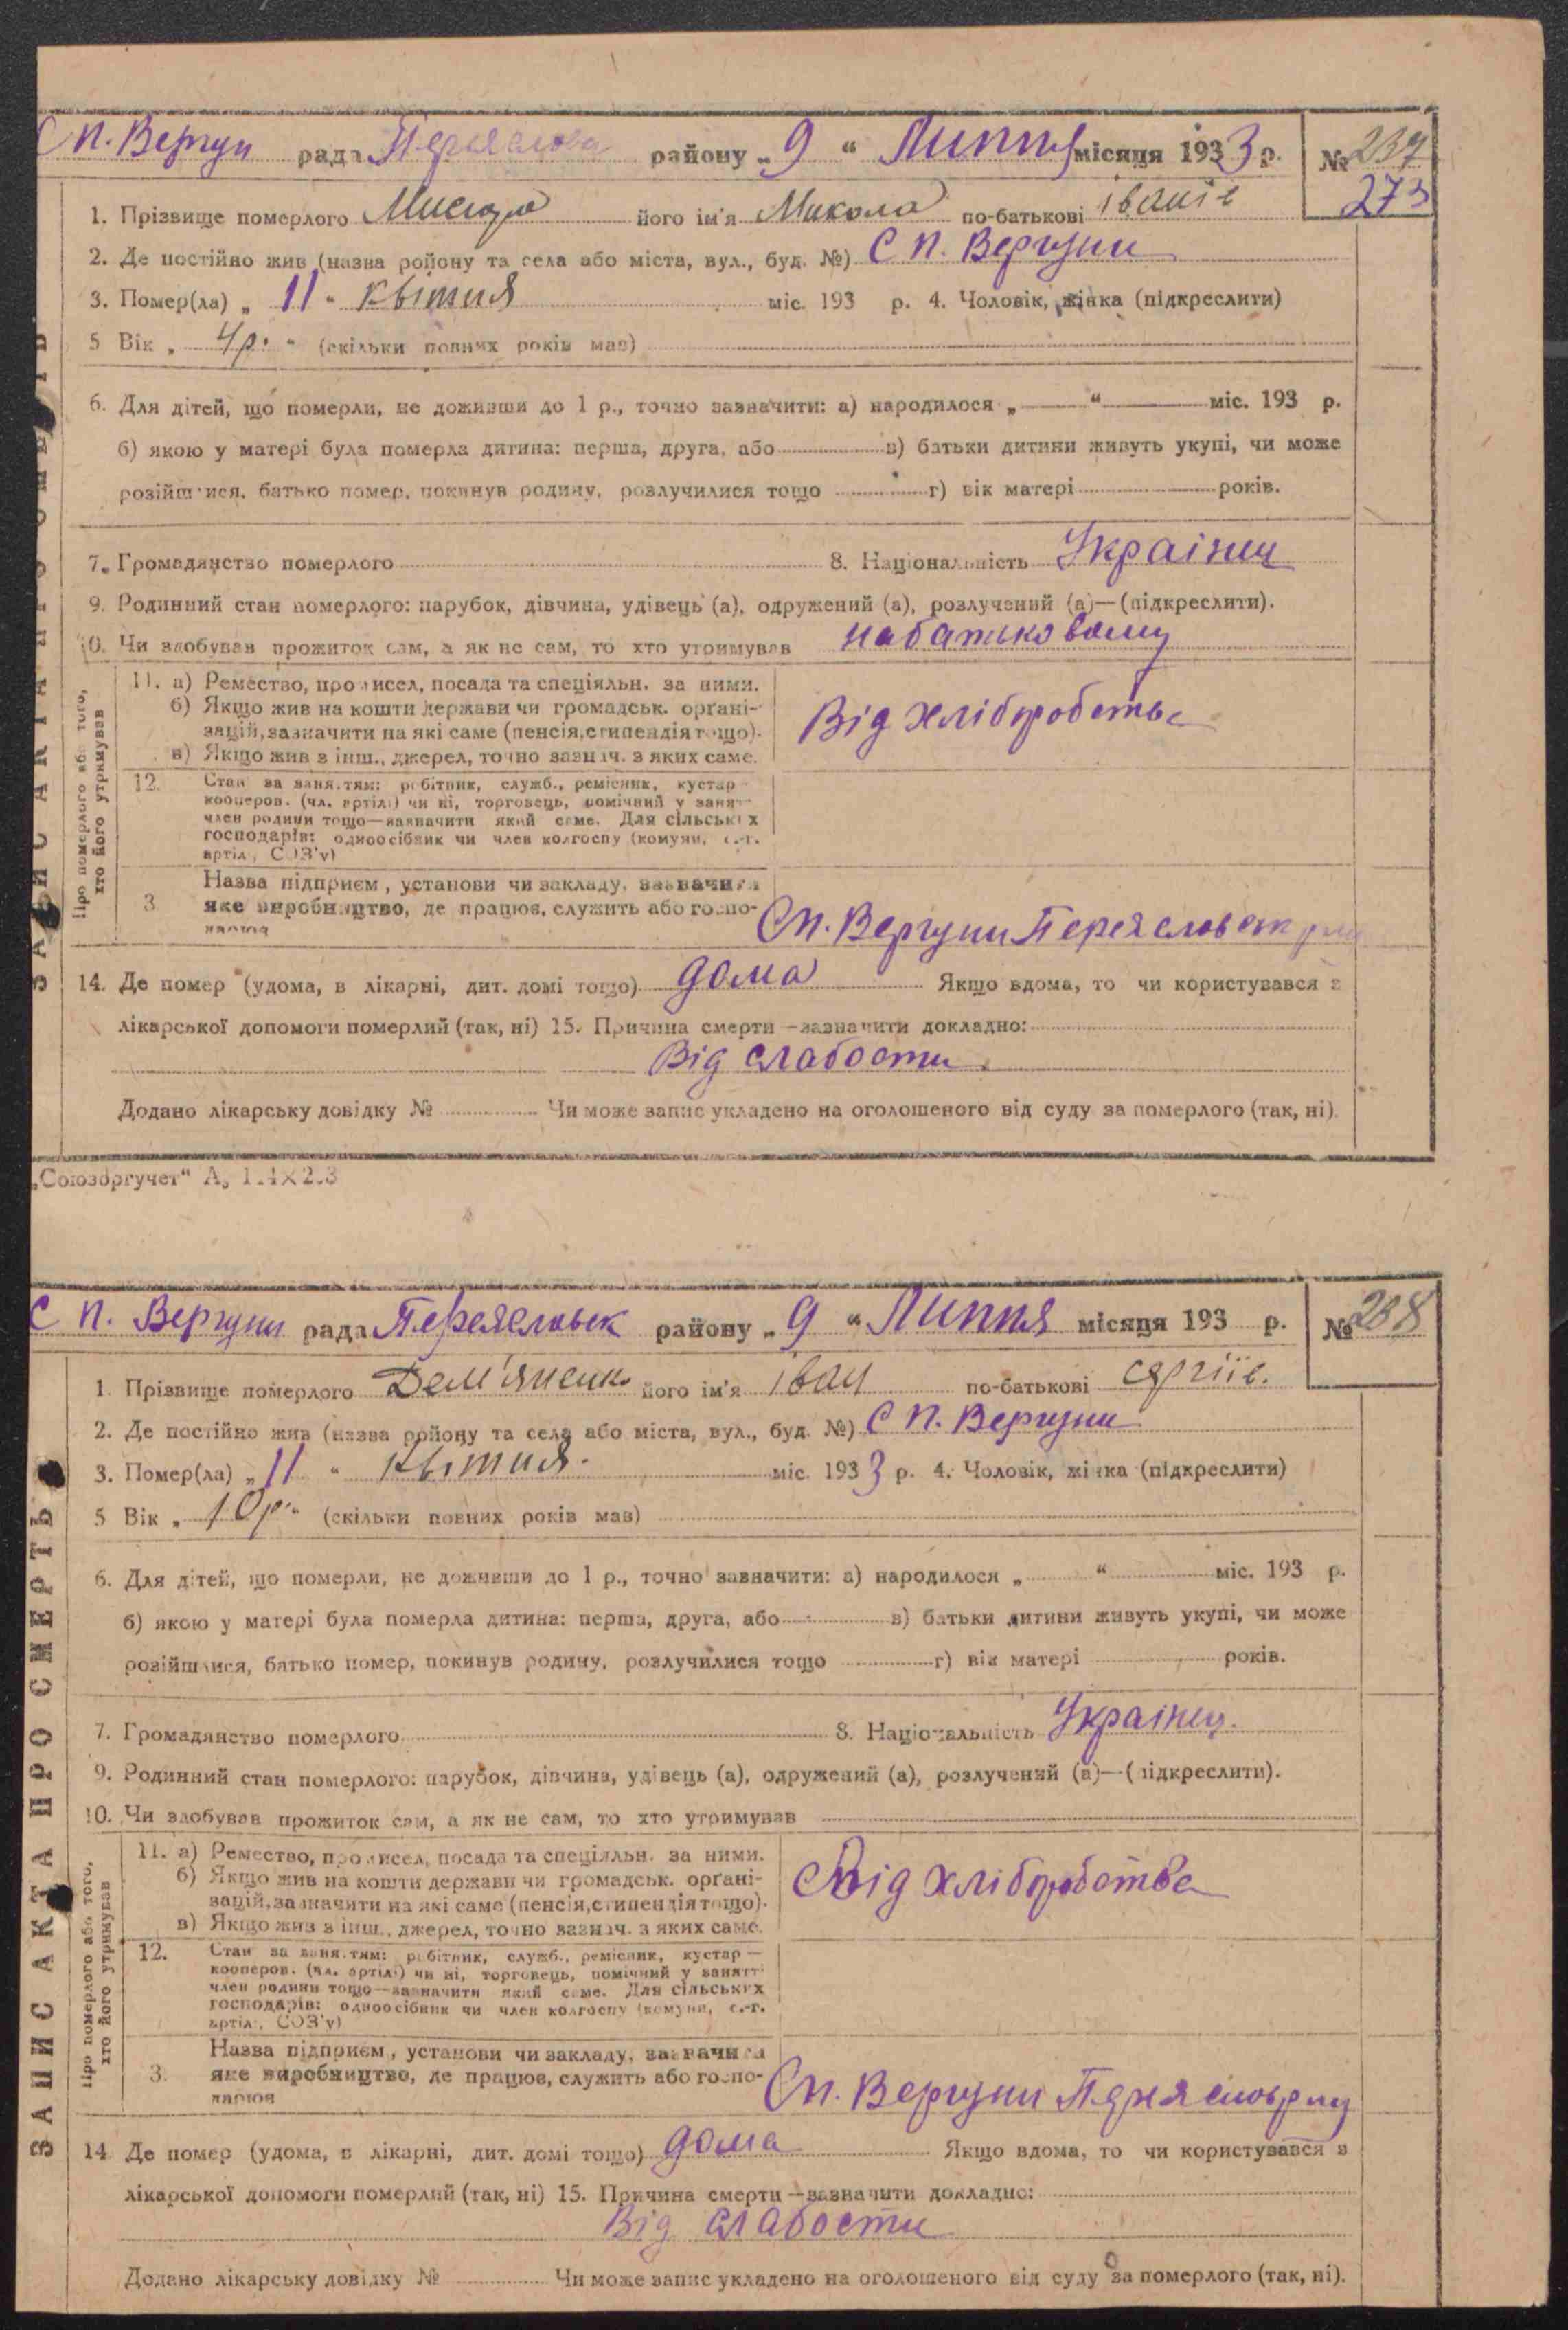 С п. Вергун рада Переяслова району „ 9 “ Липня місяця 1933 р. № 237
273
1. Прізвище померлого його ім'я Микола по-батькові іванів
2. Де постійно жив (назва ройону та села або міста, вул., буд. №) С п. Вергуни
3. Помер(ла) „ 11 “ квітня міс. 193 р. 4. Чоловік, жінка (підкреслити)
5 Вік „ 4 р. “ (скільки повних років мав)
6. Для дітей, що померли, не доживши до 1 р., точно зазначити: а) народилося „ “ міс. 193 р.
б) якою у матері була померла дитина: перша, друга, або в) батьки дитини живуть укупі, чи може
розійшлися, батько помер, покинув родину, розлучилися тощо г) вік матері років.
7. Громадянство померлого 8. Національність Украінец
9. Родинний стан померлого: парубок, дівчина, удівець (а), одружений (а), розлучений (а)—(підкреслити).
10. Чи здобував прожиток сам, а як не сам, то хто утримував
ЗАПИС АКТА ПРО СМЕРТЬ
Про померлого або того, хто його утримував
11. а) Ремество, промисел, посада та спеціяльн. за ними.
б) Якщо жив на кошти держави чи громадськ. органі-
зацій, зазначити на які саме (пенсія, стипендія тощо).
в) Якщо жив з інш., джерел, точно зазнач. з яких саме.
Від хліборобства
12. Стан за занятям: робітник, служб., ремісник, кустар —
кооперов. (чл. артілі) чи ні, торговець, помічний у занятт
член родини тощо—зазначити який саме. Для сільських
господарів: одноосібник чи член колгоспу (комуни, с.-г.
артілі, СОЗ'у)
3 Назва підприєм, установи чи закладу, зазначити
яке виробництво, де працюв, служить або госпо-
дарюв
Сп. Вергуни Переяславск
14. Де помер (удома, в лікарні, дит. домі тощо) дома Якщо вдома, то чи користувався з
лікарської допомоги померлий (так, ні) 15. Причина смерти—зазначити докладно:
Від слабости
Додано лікарську довідку № Чи може запис укладено на оголошеного від суду за померлого (так, ні).
„Союзоргучет“
С п. Вергуни рада Переяславськ району „ 9 “ Липня місяця 193 р. № 238
1. Прізвище померлого Дем'яненк його ім'я іван по-батькові сергіїв.
2. Де постійно жив (назва ройону та села або міста, вул., буд. №) С п. Вергуни
3. Помер(ла) „ 11 “ квітня. міс. 1933 р. 4. Чоловік, жінка (підкреслити)
5 Вік „ 10 р. “ (скільки повних років мав)
6. Для дітей, що померли, не доживши до 1 р., точно зазначити: а) народилося „ “ міс. 193 р.
б) якою у матері була померла дитина: перша, друга, або в) батьки дитини живуть укупі, чи може
розійшлися, батько помер, покинув родину, розлучилися тощо г) вік матері років.
7. Громадянство померлого 8. Національність Украінец.
9. Родинний стан померлого: парубок, дівчина, удівець (а), одружений (а), розлучений (а)—(підкреслити).
10. Чи здобував прожиток сам, а як не сам, то хто утримував
ЗАПИС АКТА ПРО СМЕРТЬ
Про померлого або того, хто його утримував
11. а) Ремество, промисел, посада та спеціяльн. за ними.
б) Якщо жив на кошти держави чи громадськ. органі-
зацій, зазначити на які саме (пенсія, стипендія тощо).
в) Якщо жив з інш., джерел, точно зазнач. з яких саме.
Від хліборобства
12. Стан за занятям: робітник, служб., ремісник, кустар —
кооперов. (чл. артілі) чи ні, торговець, помічний у занятті
член родини тощо—зазначити який саме. Для сільських
господарів: одноосібник чи член колгоспу (комуни, с.-г.
артілі, СОЗ'у)
3. Назва підприєм, установи чи закладу, зазначити
яке виробництво, де працюв, служить або госпо-
дарюв
Сп. Вергуни
14 Де помер (удома, в лікарні, дит. домі тощо) дома Якщо вдома, то чи користувався з
лікарської допомоги померлий (так, ні) 15. Причина смерти—зазначити докладно:
Від слабости
Додано лікарську довідку № Чи може запис укладено на оголошеного від суду за померлого (так, ні).